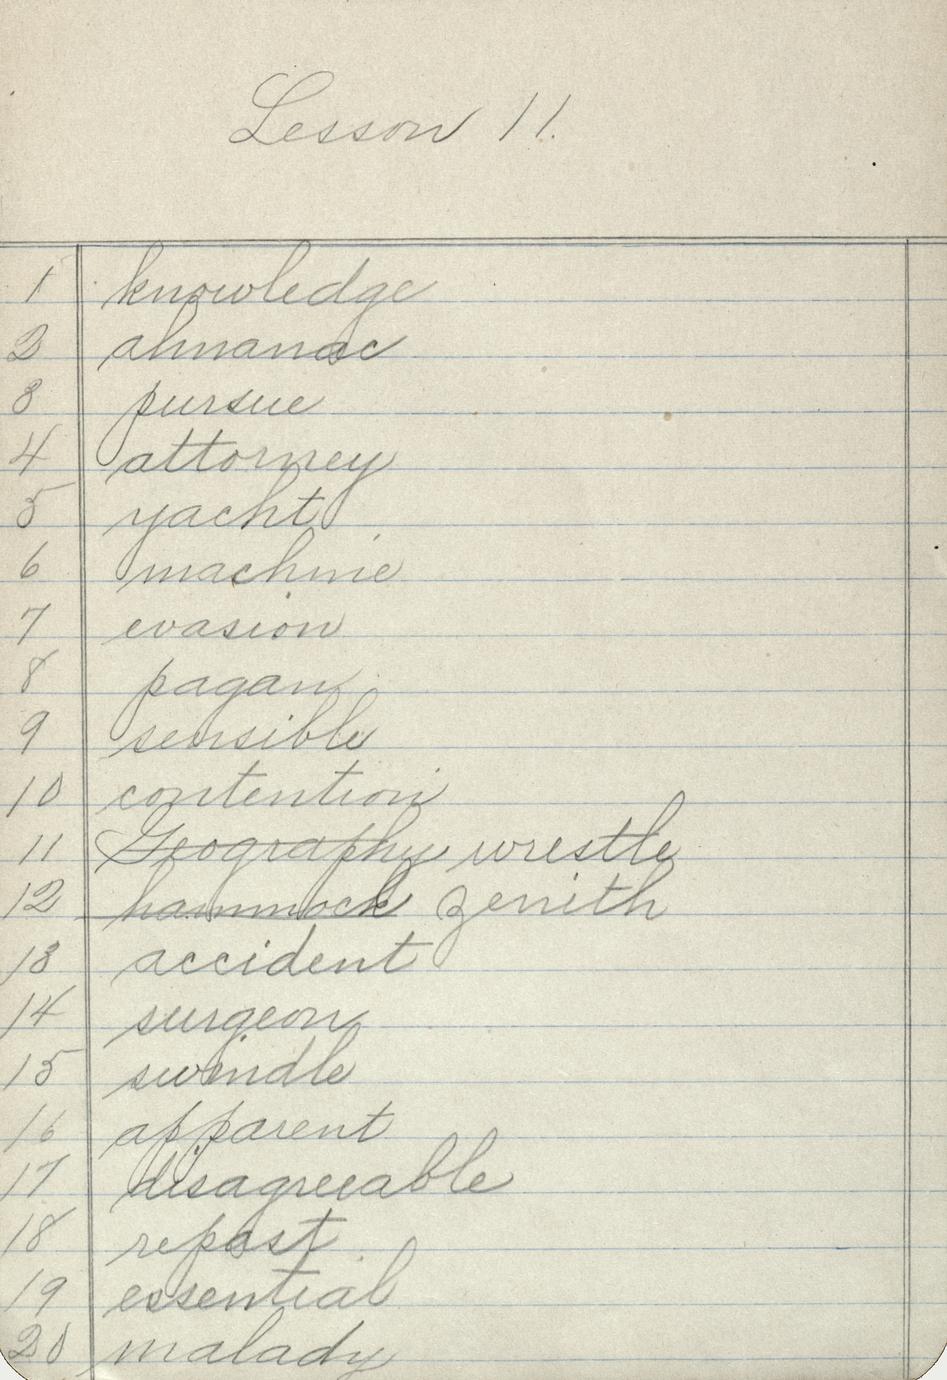 Lesson 11.
1 knowledge
2 almanac
3 pursue
4 attorney
5 yacht
6 machine
7 evasion
8 pagan
9 sensible
10 contention
11 Geography wrestle
12 hammock zenith
13 accident
14 surgeon
15 swindle
16 apparent
17 disagreeable
18 repast
19 essential
20 malady